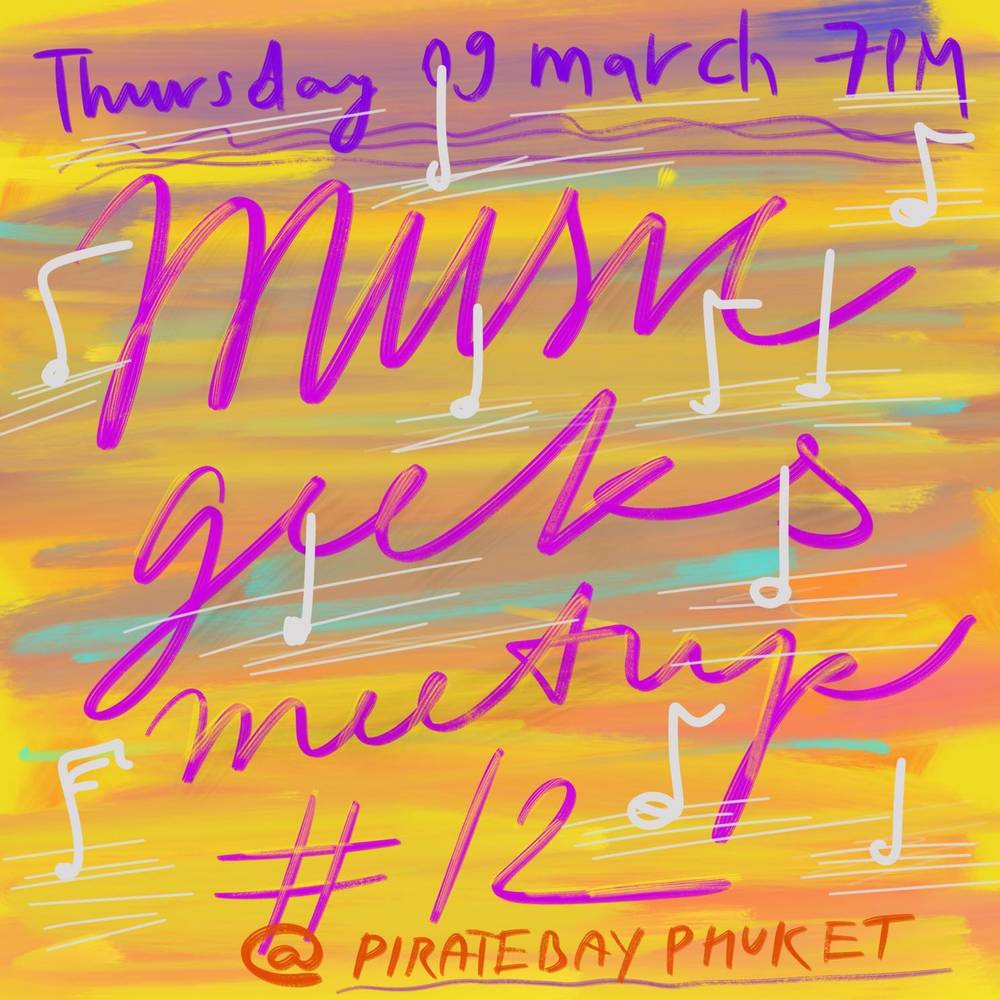 Thursday 09 march 7PM
Music
geeks
meetup
#12
@ PIRATEBAY PHUKET